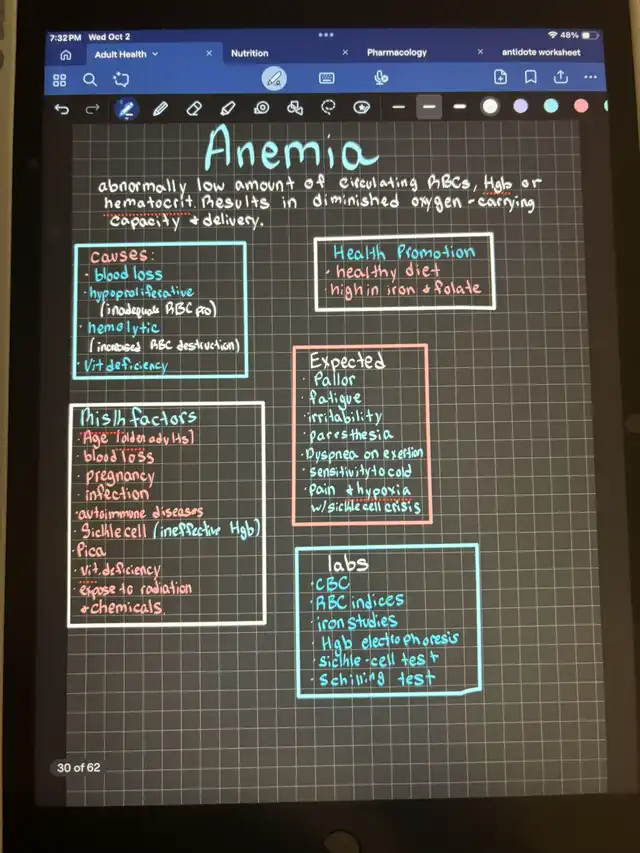 7:32 PM Wed Oct 2
48%
Adult Health
Nutrition
Pharmacology
antidote worksheet
Anemia
abnormally low amount of circulating RBCs, Hgb or
hematocrit. Results in diminished oxygen-carrying
capacity & delivery.
Causes:
· blood loss
· hypoproliferative
(inadequate RBC pro)
· hemolytic
(increased RBC destruction)
· Vit deficiency
Health Promotion
· healthy diet
· high in iron & folate
Risk factors
· Age (older adults)
· blood loss
· pregnancy
· infection
· autoimmune diseases
· Sickle cell (ineffective Hgb)
· Pica
· vit. deficiency
· expose to radiation
& chemicals.
Expected
· Pallor
· fatigue
· irritability
· paresthesia
· Dyspnea on exertion
· sensitivity to cold
· Pain & hypoxia
w/ sickle cell crisis
labs
· CBC
· RBC indices
· iron studies
· Hgb electrophoresis
· sickle-cell test
· Schilling test
30 of 62